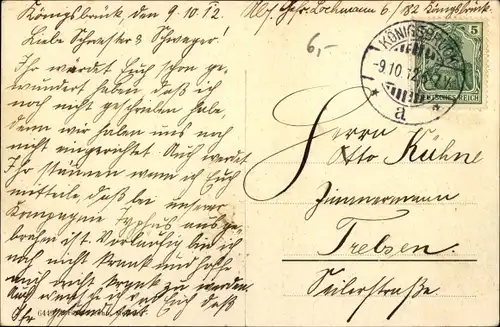 Königsbrück, den 9.10.12.
Abs. Gefr. Lochmann 6/182 Königsbrück.
Liebe Schwester & Schwager!
Ihr werdet Euch schon ge-
wundert haben daß ich
noch nicht geschrieben habe
denn wir haben uns noch
nicht eingerichtet. Auch werdet
Ihr staunen wenn ich Euch
mitteile, daß bei unserer
Kompagnie Typhus ausge-
brochen ist. Vorläufig bin ich
noch nicht krank und hoffe
auch nicht krank zu werden.
Auch Euch daß
Ihr
6,-
KÖNIGSBRÜCK
-9.10.12.
a
5
DEUTSCHES REICH
Herrn
Otto Kühne
Zimmermann
Trebsen.
Seilerstraße.